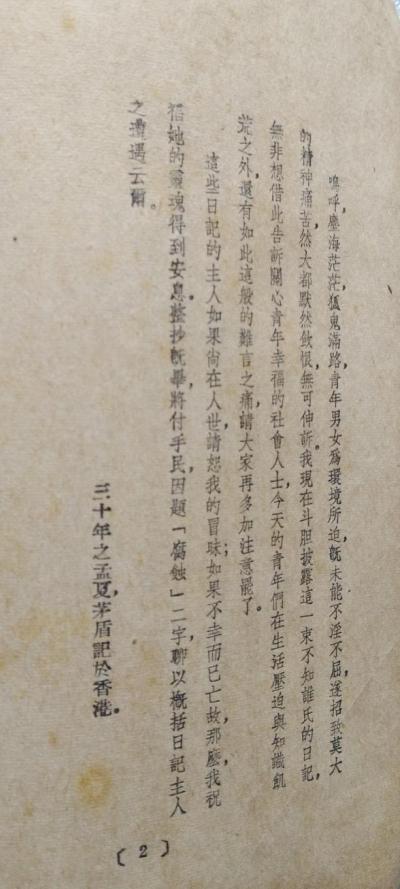 嗚呼，塵海茫茫，狐鬼滿路，青年男女爲環境所迫，旣未能不淫不屈，遂招致莫大
的精神痛苦，然大都默然飲恨，無可伸訴。我現在斗胆披露這一束不知誰氏的日記，
無非想借此告訴關心青年幸福的社會人士，今天的青年們在生活壓迫與知識飢
荒之外，還有如此這般的難言之痛，請大家再多加注意罷了。
這些日記的主人如果尙在人世，請恕我的冒昧；如果不幸而已亡故，那麽，我祝
福她的靈魂得到安息。整抄旣畢，將付手民，因題「腐蝕」二字，聊以槪括日記主人
之遭遇云爾。
三十年之孟夏，茅盾記於香港。
〔2〕